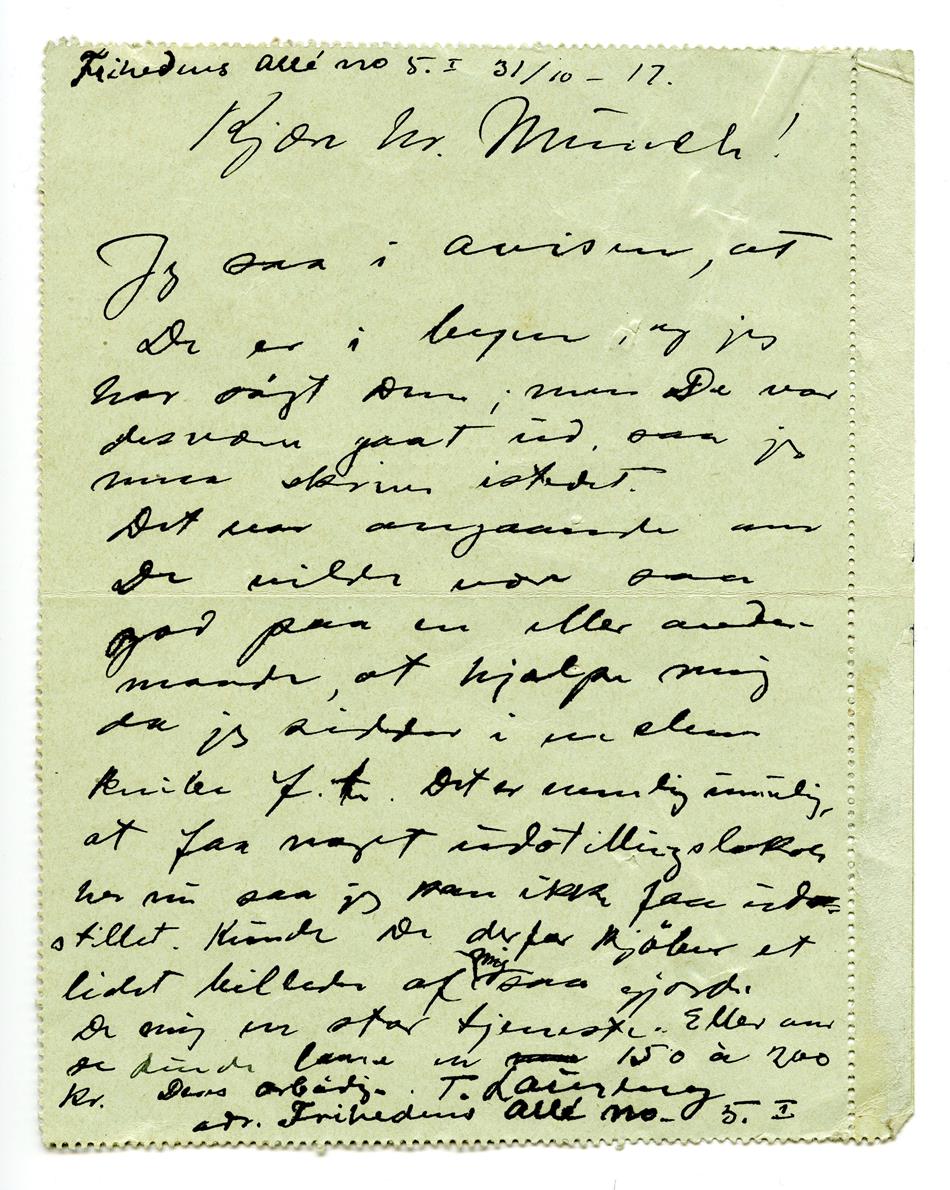 Frihedens Allé no 5. I 31/10 – 17.
Kjære hr. Münch!
Jeg saa i avisen, at
De er i byen, og jeg
har søgt Dem; men De var
desværre gaat ud, saa jeg
maa skrive istedet.
Det var angaaende om
De vilde være saa
god paa en eller anden
maade, at hjælpe mig
da jeg sidder i en slem
knibe f. t. Det er nemlig umulig,
at faa noget udstillingslokale
her nu saa jeg kan ikke faa ud-
stillet. Kunde De derfor kjöbe et
lidet billede af mig saa gjorde
De mig en stor tjeneste. Eller om
De kunde laane en 150 à 200
kr. Deres arbødig. T.
adr. Frihedens Allé no. 5. I